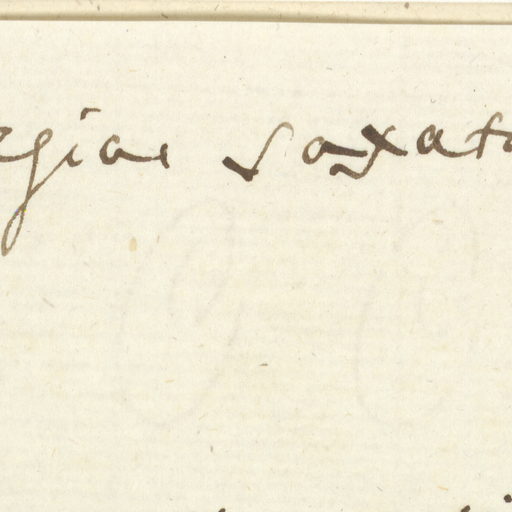 egiae saxato